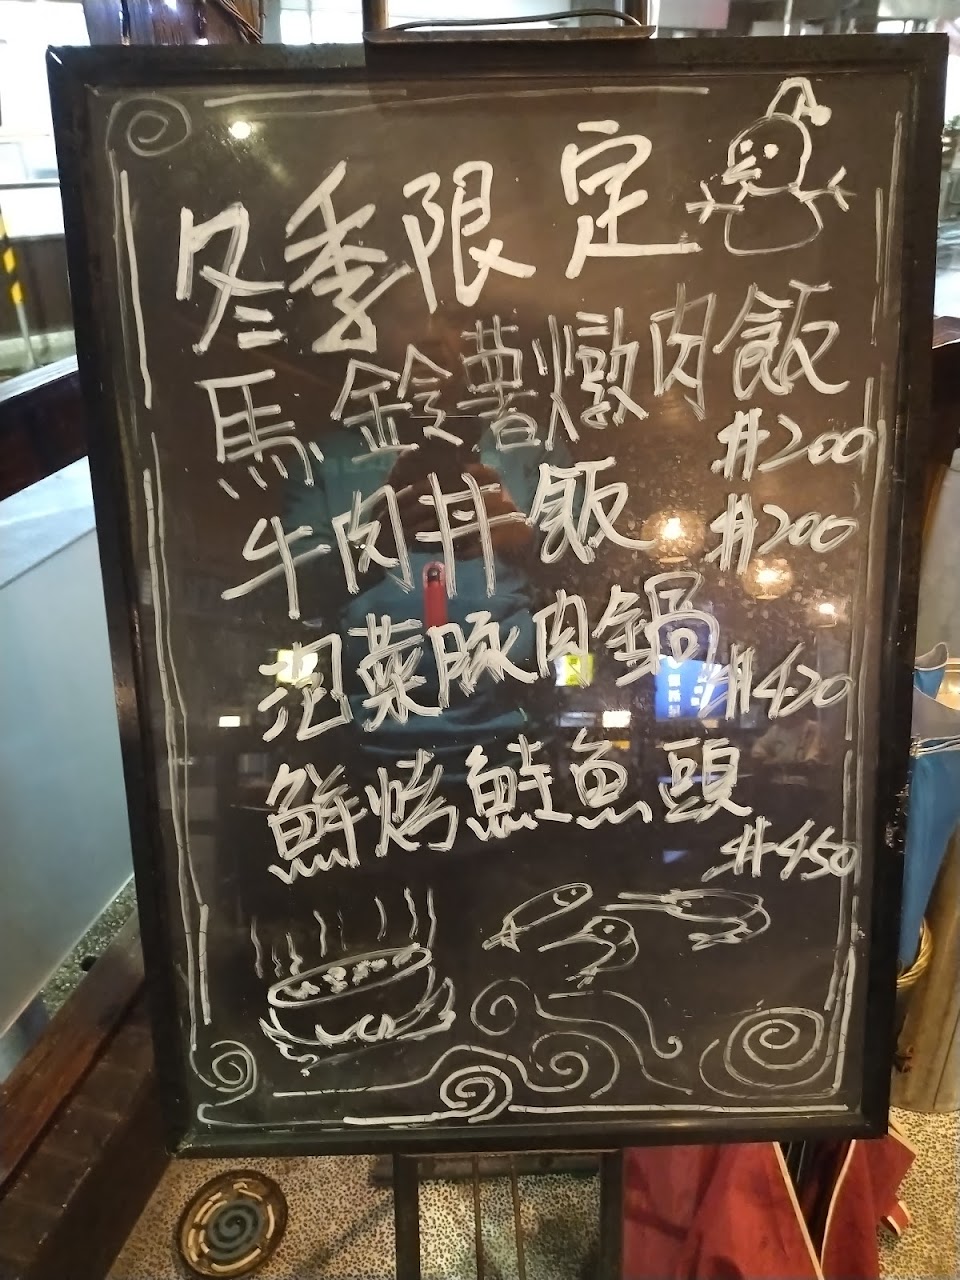 冬季限定
馬鈴薯燉肉飯
#200
牛肉丼飯 #200
泡菜豚肉鍋 #420
鮮烤鮭魚頭
#450